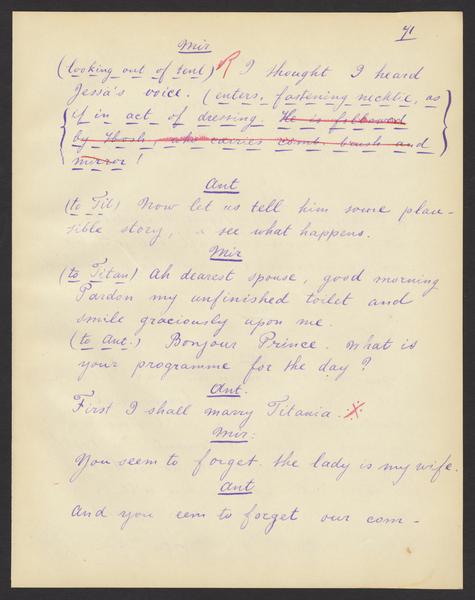 41
Mir
(looking out of tent) R I thought I heard
Jessa's voice. (enters, fastening necktie, as
if in act of dressing. He is followed
by Hosh, who carries comb, brush and
mirror!
Ant
(to Tit) Now let us tell him some plau-
sible story, & see what happens.
Mir
(to Titan) Ah dearest spouse, good morning
Pardon my unfinished toilet and
smile graciously upon me.
(to Ant.) Bonjour Prince. What is
your programme for the day?
Ant.
First I shall marry Titania.
Mir:
You seem to forget the lady is my wife.
Ant
And you eem to forget our com-